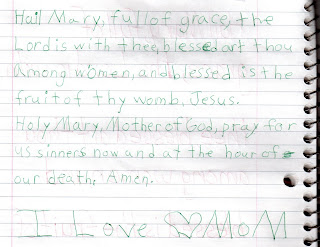 Hail Mary, full of grace, the
Lord is with thee, blessed art thou
Among women, and blessed is the
fruit of thy womb, Jesus.
Holy Mary, Mother of God, pray for
us sinners now and at the hour of
our death, Amen.
I Love ♡ MoM